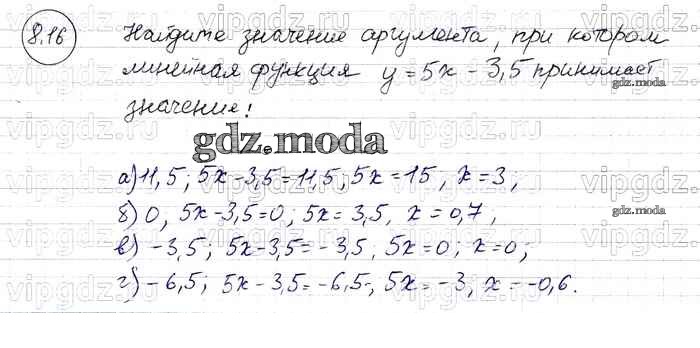 8.16 Найдите значение аргумента, при котором
линейная функция y = 5x - 3,5 принимает
значение:
gdz.moda
а) 11,5; 5x - 3,5 = 11,5; 5x = 15, x = 3;
б) 0, 5x - 3,5 = 0; 5x = 3,5, x = 0,7;
в) -3,5; 5x - 3,5 = -3,5, 5x = 0; x = 0;
г) -6,5; 5x - 3,5 = -6,5, 5x = -3, x = -0,6.
gdz.moda
gdz.moda
gdz.moda
vipgdz.ru